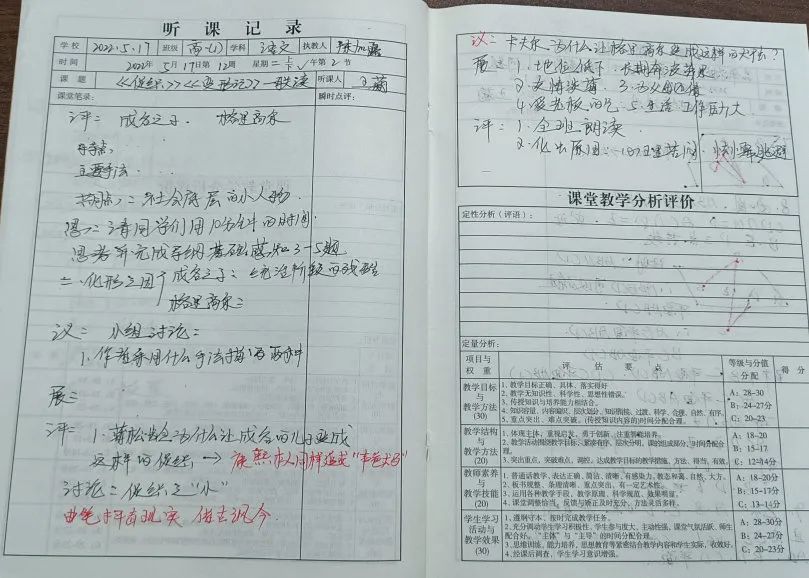 听课记录
学校 2022.5.17 班级 高一(1) 学科 语文 执教人
时间 2022年5月17日第12周 星期二 上午第2节
课题 《促织》《变形记》联读 听课人 王
课堂笔录： 瞬时点评：
评： 成名之子. 格里高尔
异等点：
主要手法
共同点：二 社会底层的小人物.
思：请同学们用10分钟的时间.
思考并完成导纲基础感知3-5题
二.化形之因 成名之子：统治阶级的残酷
格里高尔：
议： 小组讨论：
1.作者采用什么手法描写两
展：
评： 1.蒲松龄为什么让成名的儿子变成
这样的促织 →
讨论：促织之“小”
议： 卡夫卡为什么让格里高尔变成这样的大虫？
展 1.地位低下. 长期
2. 3.为父母还债
4.老板的 5.生活工作压力大
评： 1.全班朗读
2.化虫原因：
课堂教学分析评价
定性分析（评语）：
定量分析：
项目与权重 评估要点 等级与分值分配 得分
教学目标与教学方法(30)
1、教学目标正确、具体、落实得好
2、教学无知识性、科学性、思想性错误。
3、传授知识与培养能力相结合。
4、知识容量、内容编织、层次划分、知识衔接、过渡、科学、合理、自然、有序。
5、重点突出、难点突破。(传授知识内容的)时间分配合理。
A：28-30
B：24-27分
C：20-23
教学结构与教学方法(20)
1、体现主体，重视启发，勇于创新，注重思维培养。
2、教学活动围绕教学目标、紧凑有序、层次分明，课的组成部分、时间分配合理。
3、突出重点，突破难点，调控，达成教学目标的教学措施、方法，得当，有效。
A：18-20
B：15-17
C：12-14分
教师素养与教学技能(20)
1、普通话教学，表达正确、简洁、清晰、有感染力，教态和蔼、自然、大方。
2、板书规整、条理清晰、重点突出、有一定艺术性。
3、运用各种教学手段，教学原则，科学规范、效果明显。
4、课堂调整恰当，反馈与矫正及时充分，方法灵活多样。
A：18-20分
B：15-17分
C：13-14分
学生学习活动与教学效果(30)
1、遵纲守本、按时完成教学任务。
2、充分调动学生学习积极性、学生参与度大、主动性强，课堂气氛活跃、师生配合好。“主体”与“主导”的时间分配合理。
3、思维训练、能力培养、思想教育等紧密结合教学内容和学生实际，收效好。
4、经课后调查，学生学习意识增强。
A：28-30分
B：24-27分
C：20-23分